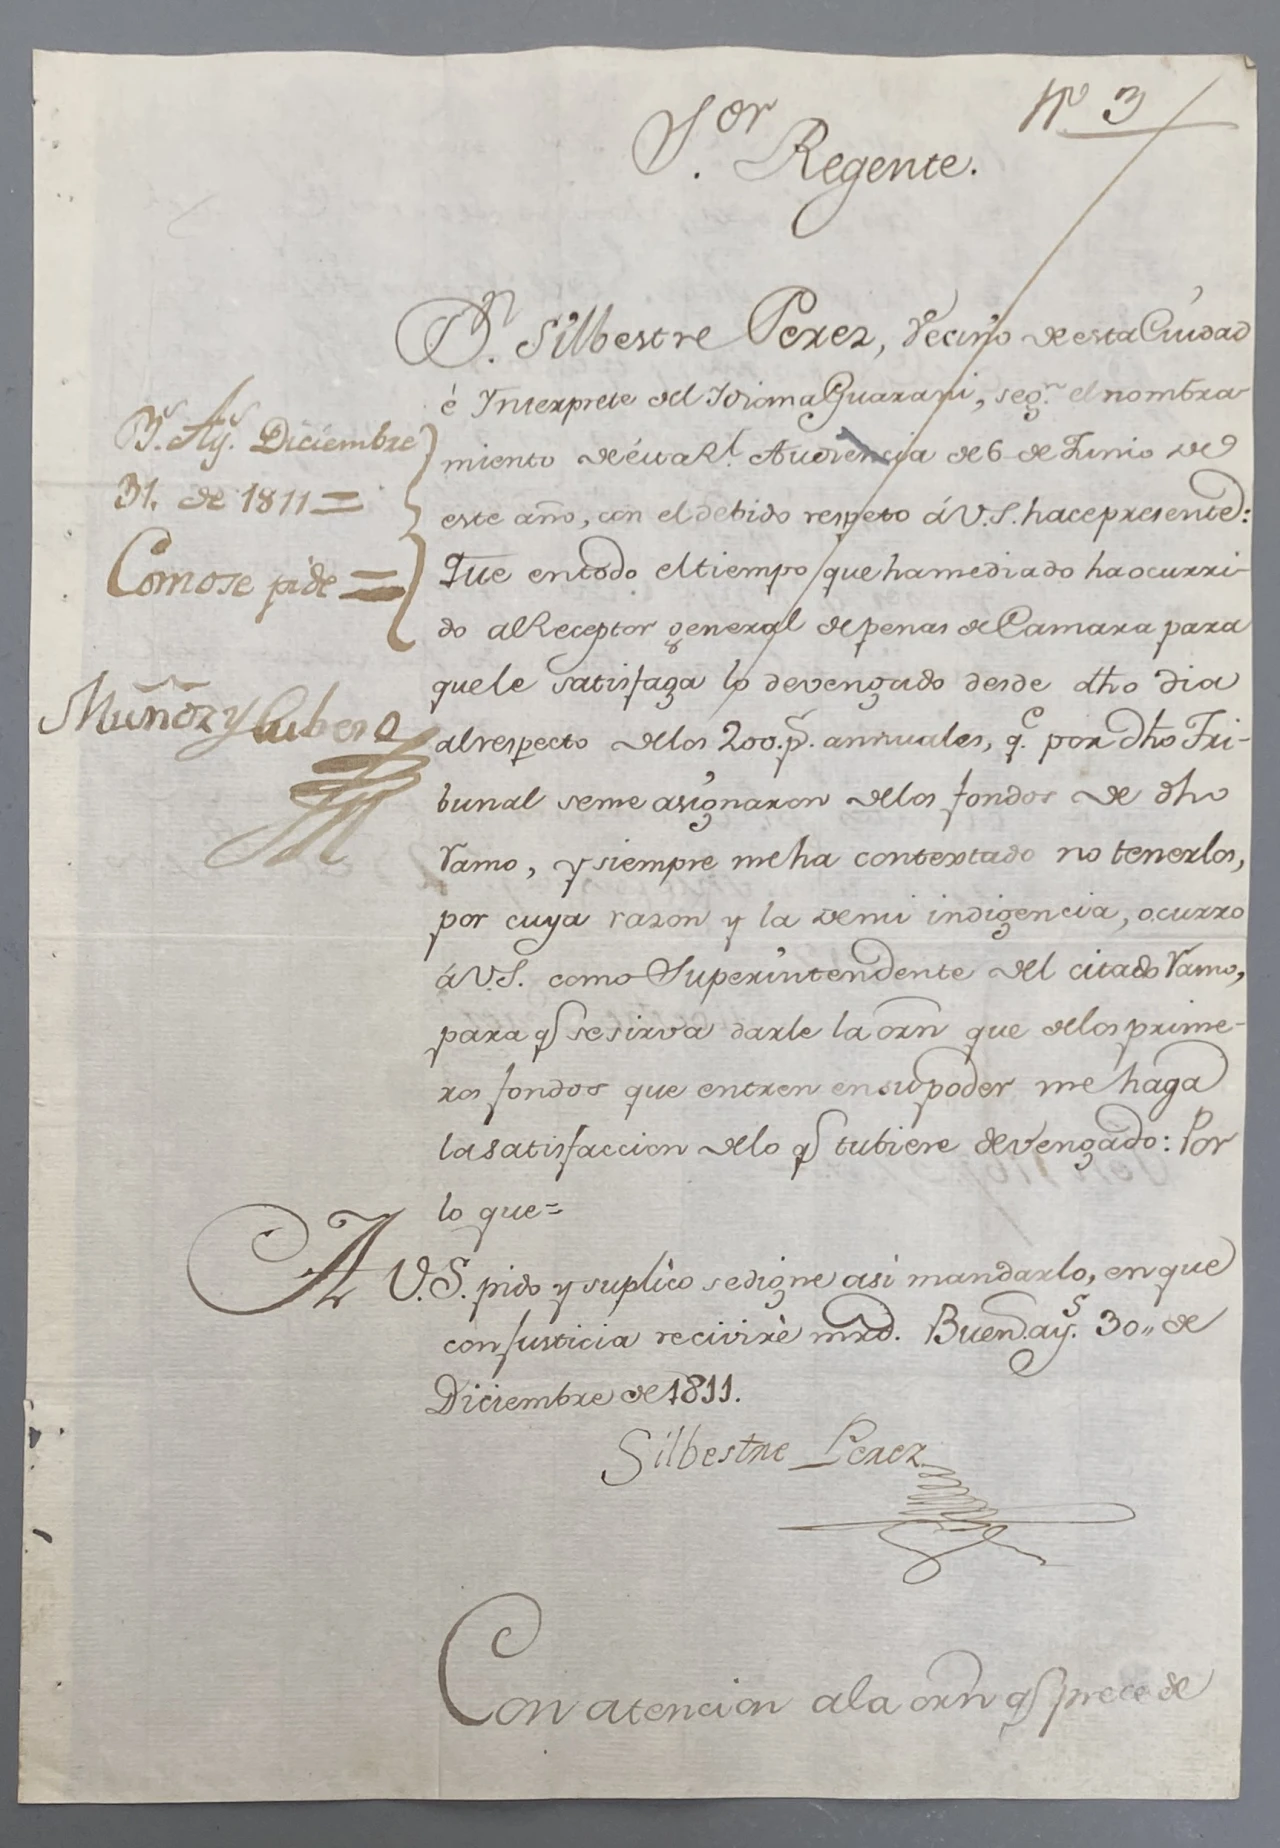 Nº 3
S.or Regente.
D.n Silbestre Perez, Vecino de esta Ciudad
è Ynterprete del Idioma Guarani, seg.n el nombra-
miento de ésta R.l Audiencia de 6 de Junio de
este año, con el debido respeto á V.S. hace presente:
Que en todo el tiempo que ha mediado ha ocurri-
do al Receptor general de penas de Camara para
que le satisfaga lo devengado desde dho dia
al respecto de los 200. p.s annuales, q.e por dho Tri-
bunal se me asignaron de los fondos de dho
Ramo, y siempre me ha contextado no tenerlos,
por cuya razon y la de mi indigencia, ocurro
á V.S. como Superintendente del citado Ramo,
para q.e se sirva darle la orn que de los prime-
ros fondos que entren en su poder me haga
la satisfaccion de lo q.e tubiere devengado: Por
lo que=
A V.S. pido y suplico se digne asi mandarlo, en que
con justicia recivirè mrd. Buen.ay.s 30,, de
Diciembre de 1811.
Silbestre Perez
B.s Ay.s Diciembre
31. de 1811=
Como se pide=
Muñoz y Cubero
Con atencion a la orn q.e precede